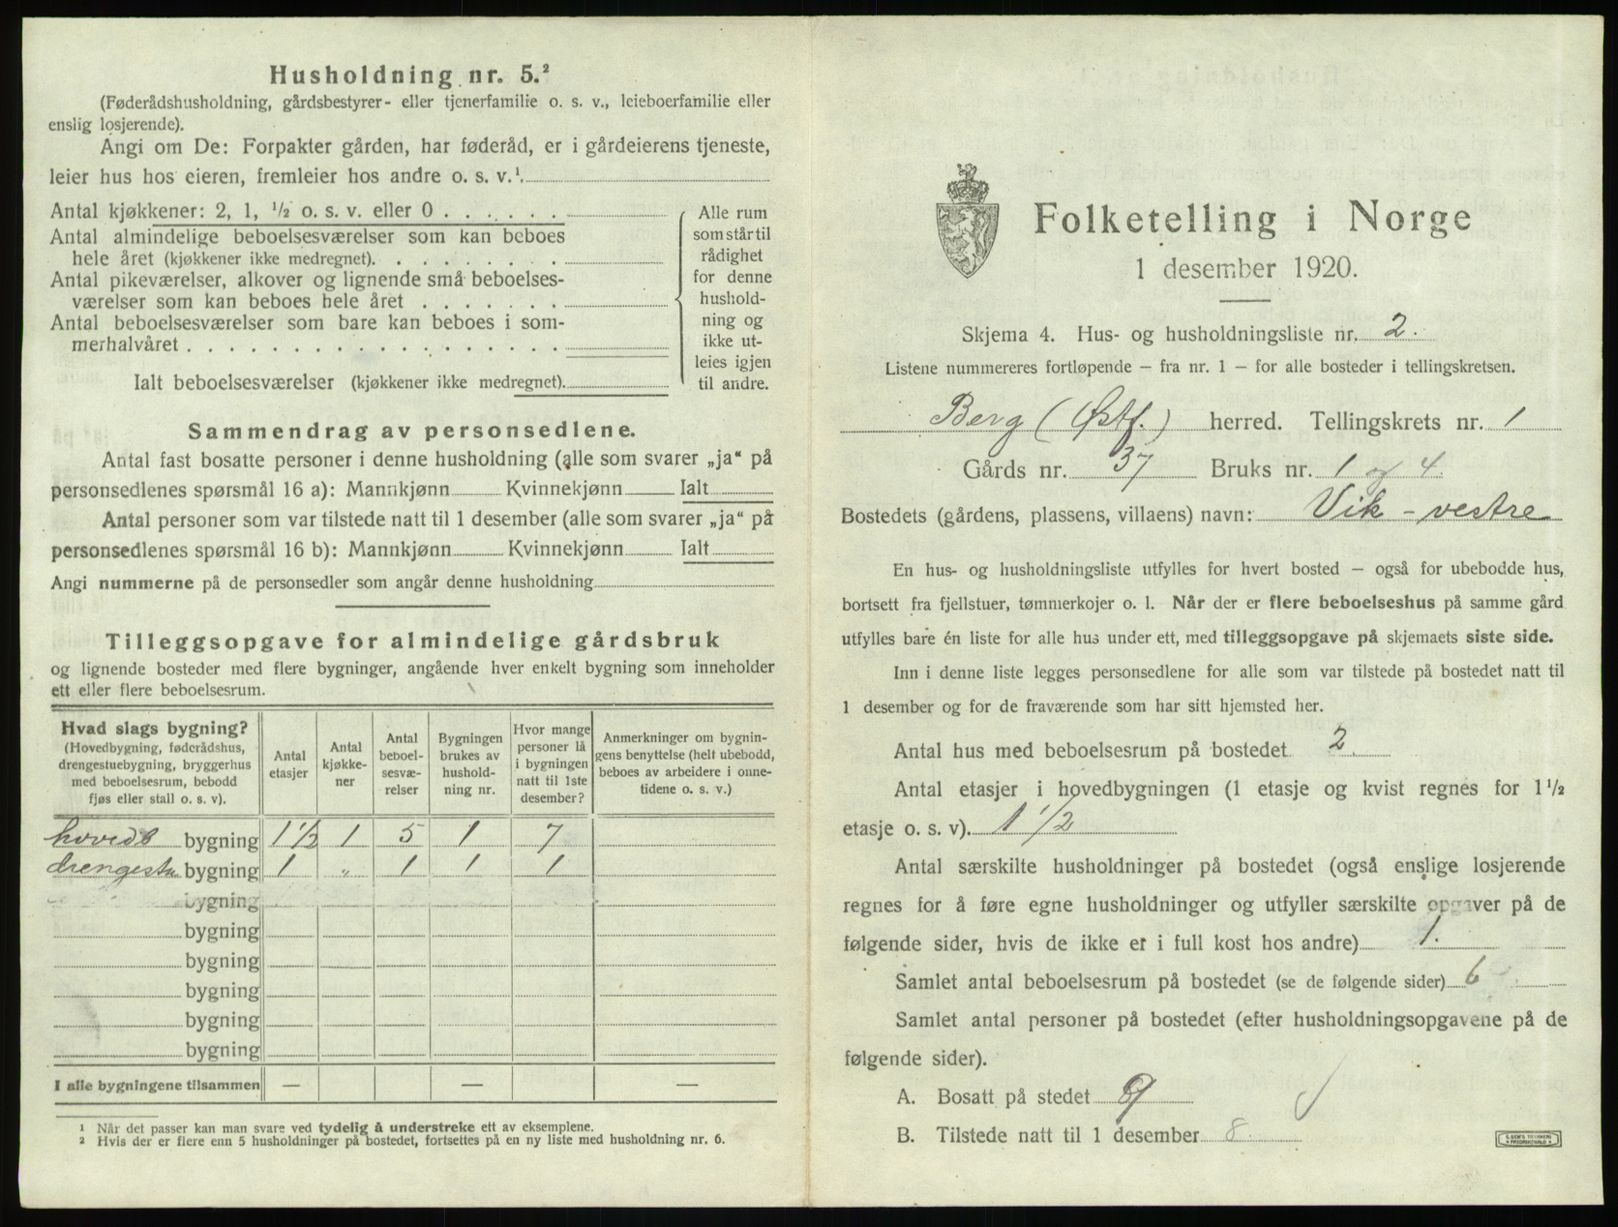 Husholdning nr. 5.²
(Føderådshusholdning, gårdsbestyrer- eller tjenerfamilie o. s. v., leieboerfamilie eller
enslig losjerende).
Angi om De: Forpakter gården, har føderåd, er i gårdeierens tjeneste,
leier hus hos eieren, fremleier hos andre o. s. v.¹
Antal kjøkkener: 2, 1, ½ o. s. v. eller 0 . . . . . .
Antal almindelige beboelsesværelser som kan beboes
hele året (kjøkkener ikke medregnet). . . . . . . .
Antal pikeværelser, alkover og lignende små beboelses-
værelser som kan beboes hele året . . . . . .
Antal beboelsesværelser som bare kan beboes i som-
merhalvåret . . . . . . . . . . . . . . . . . .
Ialt beboelsesværelser (kjøkkener ikke medregnet).
Alle rum
som står til
rådighet
for denne
hushold-
ning og
ikke ut-
leies igjen
til andre.
Sammendrag av personsedlene.
Antal fast bosatte personer i denne husholdning (alle som svarer „ja“ på
personsedlenes spørsmål 16 a): Mannkjønn Kvinnekjønn Ialt
Antal personer som var tilstede natt til 1 desember (alle som svarer „ja“ på
personsedlenes spørsmål 16 b): Mannkjønn Kvinnekjønn Ialt
Angi nummerne på de personsedler som angår denne husholdning
Tilleggsopgave for almindelige gårdsbruk
og lignende bosteder med flere bygninger, angående hver enkelt bygning som inneholder
ett eller flere beboelsesrum.
Hvad slags bygning?
(Hovedbygning, føderådshus,
drengestuebygning, bryggerhus
med beboelsesrum, bebodd
fjøs eller stall o. s. v).
Antal
etasjer
Antal
kjøkke-
ner
Antal
beboel-
sesvæ-
relser
Bygningen
brukes av
hushold-
ning nr.
Hvor mange
personer lå
i bygningen
natt til 1ste
desember?
Anmerkninger om bygnin-
gens benyttelse (helt ubebodd,
beboes av arbeidere i onne-
tidene o. s. v.)
hovedb bygning 1½ 1 5 1 7
drengestu bygning 1 „ 1 1 1
bygning
bygning
bygning
bygning
bygning
bygning
I alle bygningene tilsammen — — —
¹ Når det passer kan man svare ved tydelig å understreke ett av eksemplene.
² Hvis der er flere enn 5 husholdninger på bostedet, fortsettes på en ny liste med husholdning nr. 6.
Folketelling i Norge
1 desember 1920.
Skjema 4. Hus- og husholdningsliste nr. 2.
Listene nummereres fortløpende — fra nr. 1 — for alle bosteder i tellingskretsen.
Berg (Østf.) herred. Tellingskrets nr. 1
Gårds nr. 37 Bruks nr. 1 og 4.
Bostedets (gårdens, plassens, villaens) navn: Vik - vestre
En hus- og husholdningsliste utfylles for hvert bosted — også for ubebodde hus,
bortsett fra fjellstuer, tømmerkojer o. l. Når der er flere beboelseshus på samme gård
utfylles bare én liste for alle hus under ett, med tilleggsopgave på skjemaets siste side.
Inn i denne liste legges personsedlene for alle som var tilstede på bostedet natt til
1 desember og for de fraværende som har sitt hjemsted her.
Antal hus med beboelsesrum på bostedet 2.
Antal etasjer i hovedbygningen (1 etasje og kvist regnes for 1½
etasje o. s. v). 1½
Antal særskilte husholdninger på bostedet (også enslige losjerende
regnes for å føre egne husholdninger og utfyller særskilte opgaver på de
følgende sider, hvis de ikke er i full kost hos andre) 1.
Samlet antal beboelsesrum på bostedet (se de følgende sider) 6
Samlet antal personer på bostedet (efter husholdningsopgavene på de
følgende sider).
A. Bosatt på stedet 9
B. Tilstede natt til 1 desember 8.